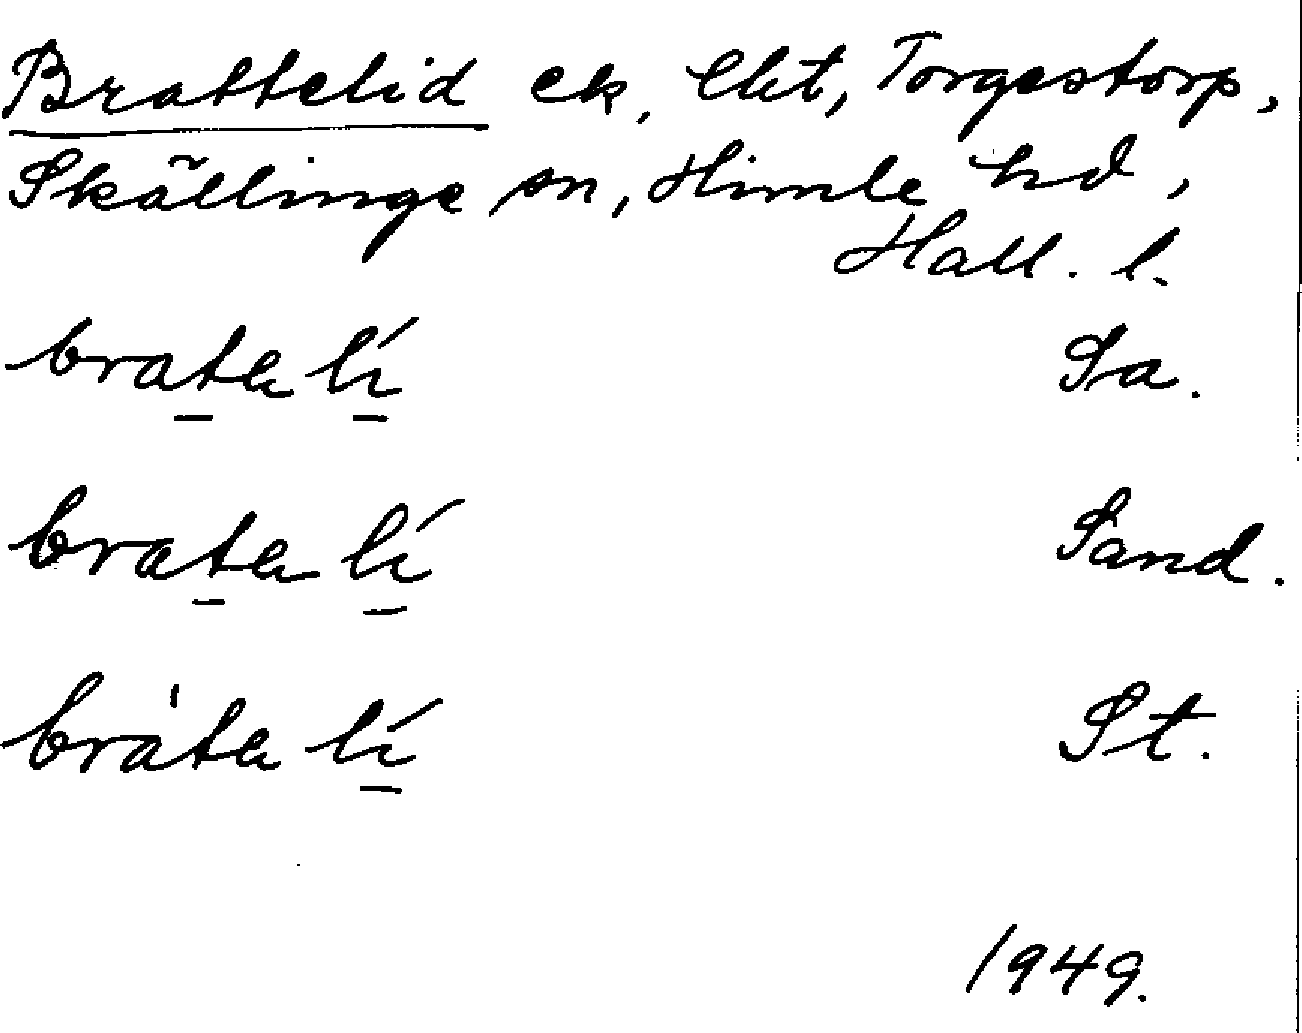 Brattelid ek, lht, Torgestorp,
Skällinge sn, Himle hd,
Hall. l.
brata lí Sa.
brata lí Sand.
bràta lí St.
1949.